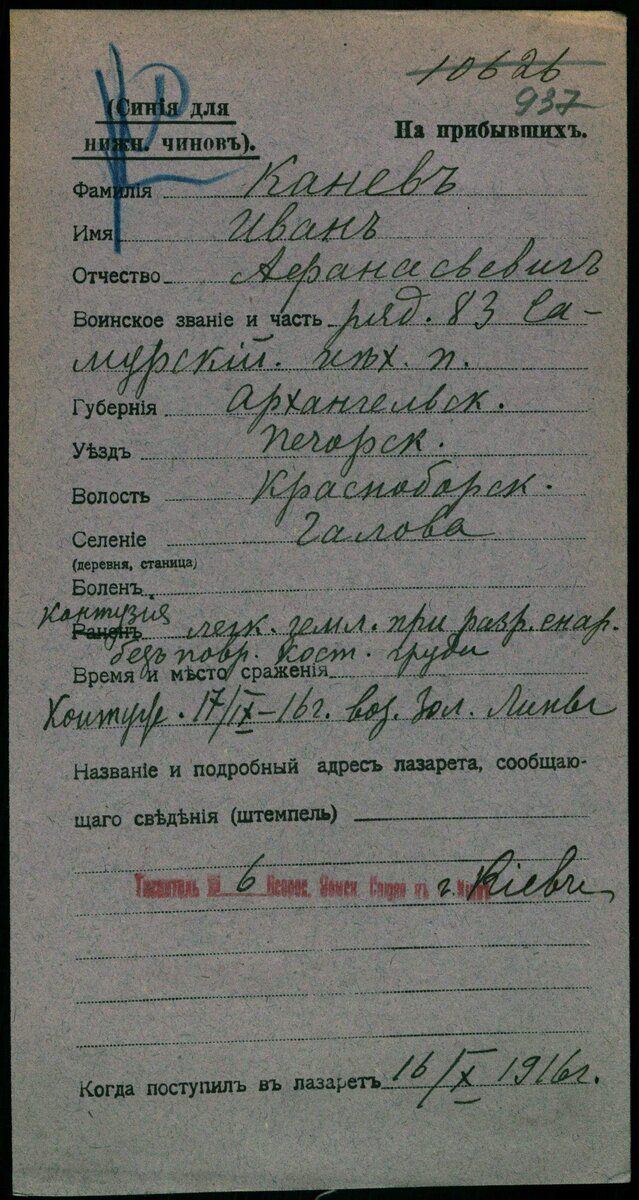 10626
937
(Синія для
нижн. чиновъ).
На прибывшихъ.
Фамилія Каневъ
Имя Иванъ
Отчество Афанасьевичъ
Воинское званіе и часть ряд. 83 Са-
мурскій. пѣх. п.
Губернія Архангельск.
Уѣздъ Печорск.
Волость Красноборск.
Селеніе Галова
(деревня, станица)
Боленъ
контузія
Раненъ легк. земл. при разр. снар.
безъ повр. кост. груди
Время и мѣсто сраженія
Контуж. 17/IX-16г. воз. Зол. Липы
Названіе и подробный адресъ лазарета, сообщаю-
щаго свѣдѣнія (штемпель)
6 г. Кіевъ
Когда поступилъ въ лазаретъ 16/X 1916г.